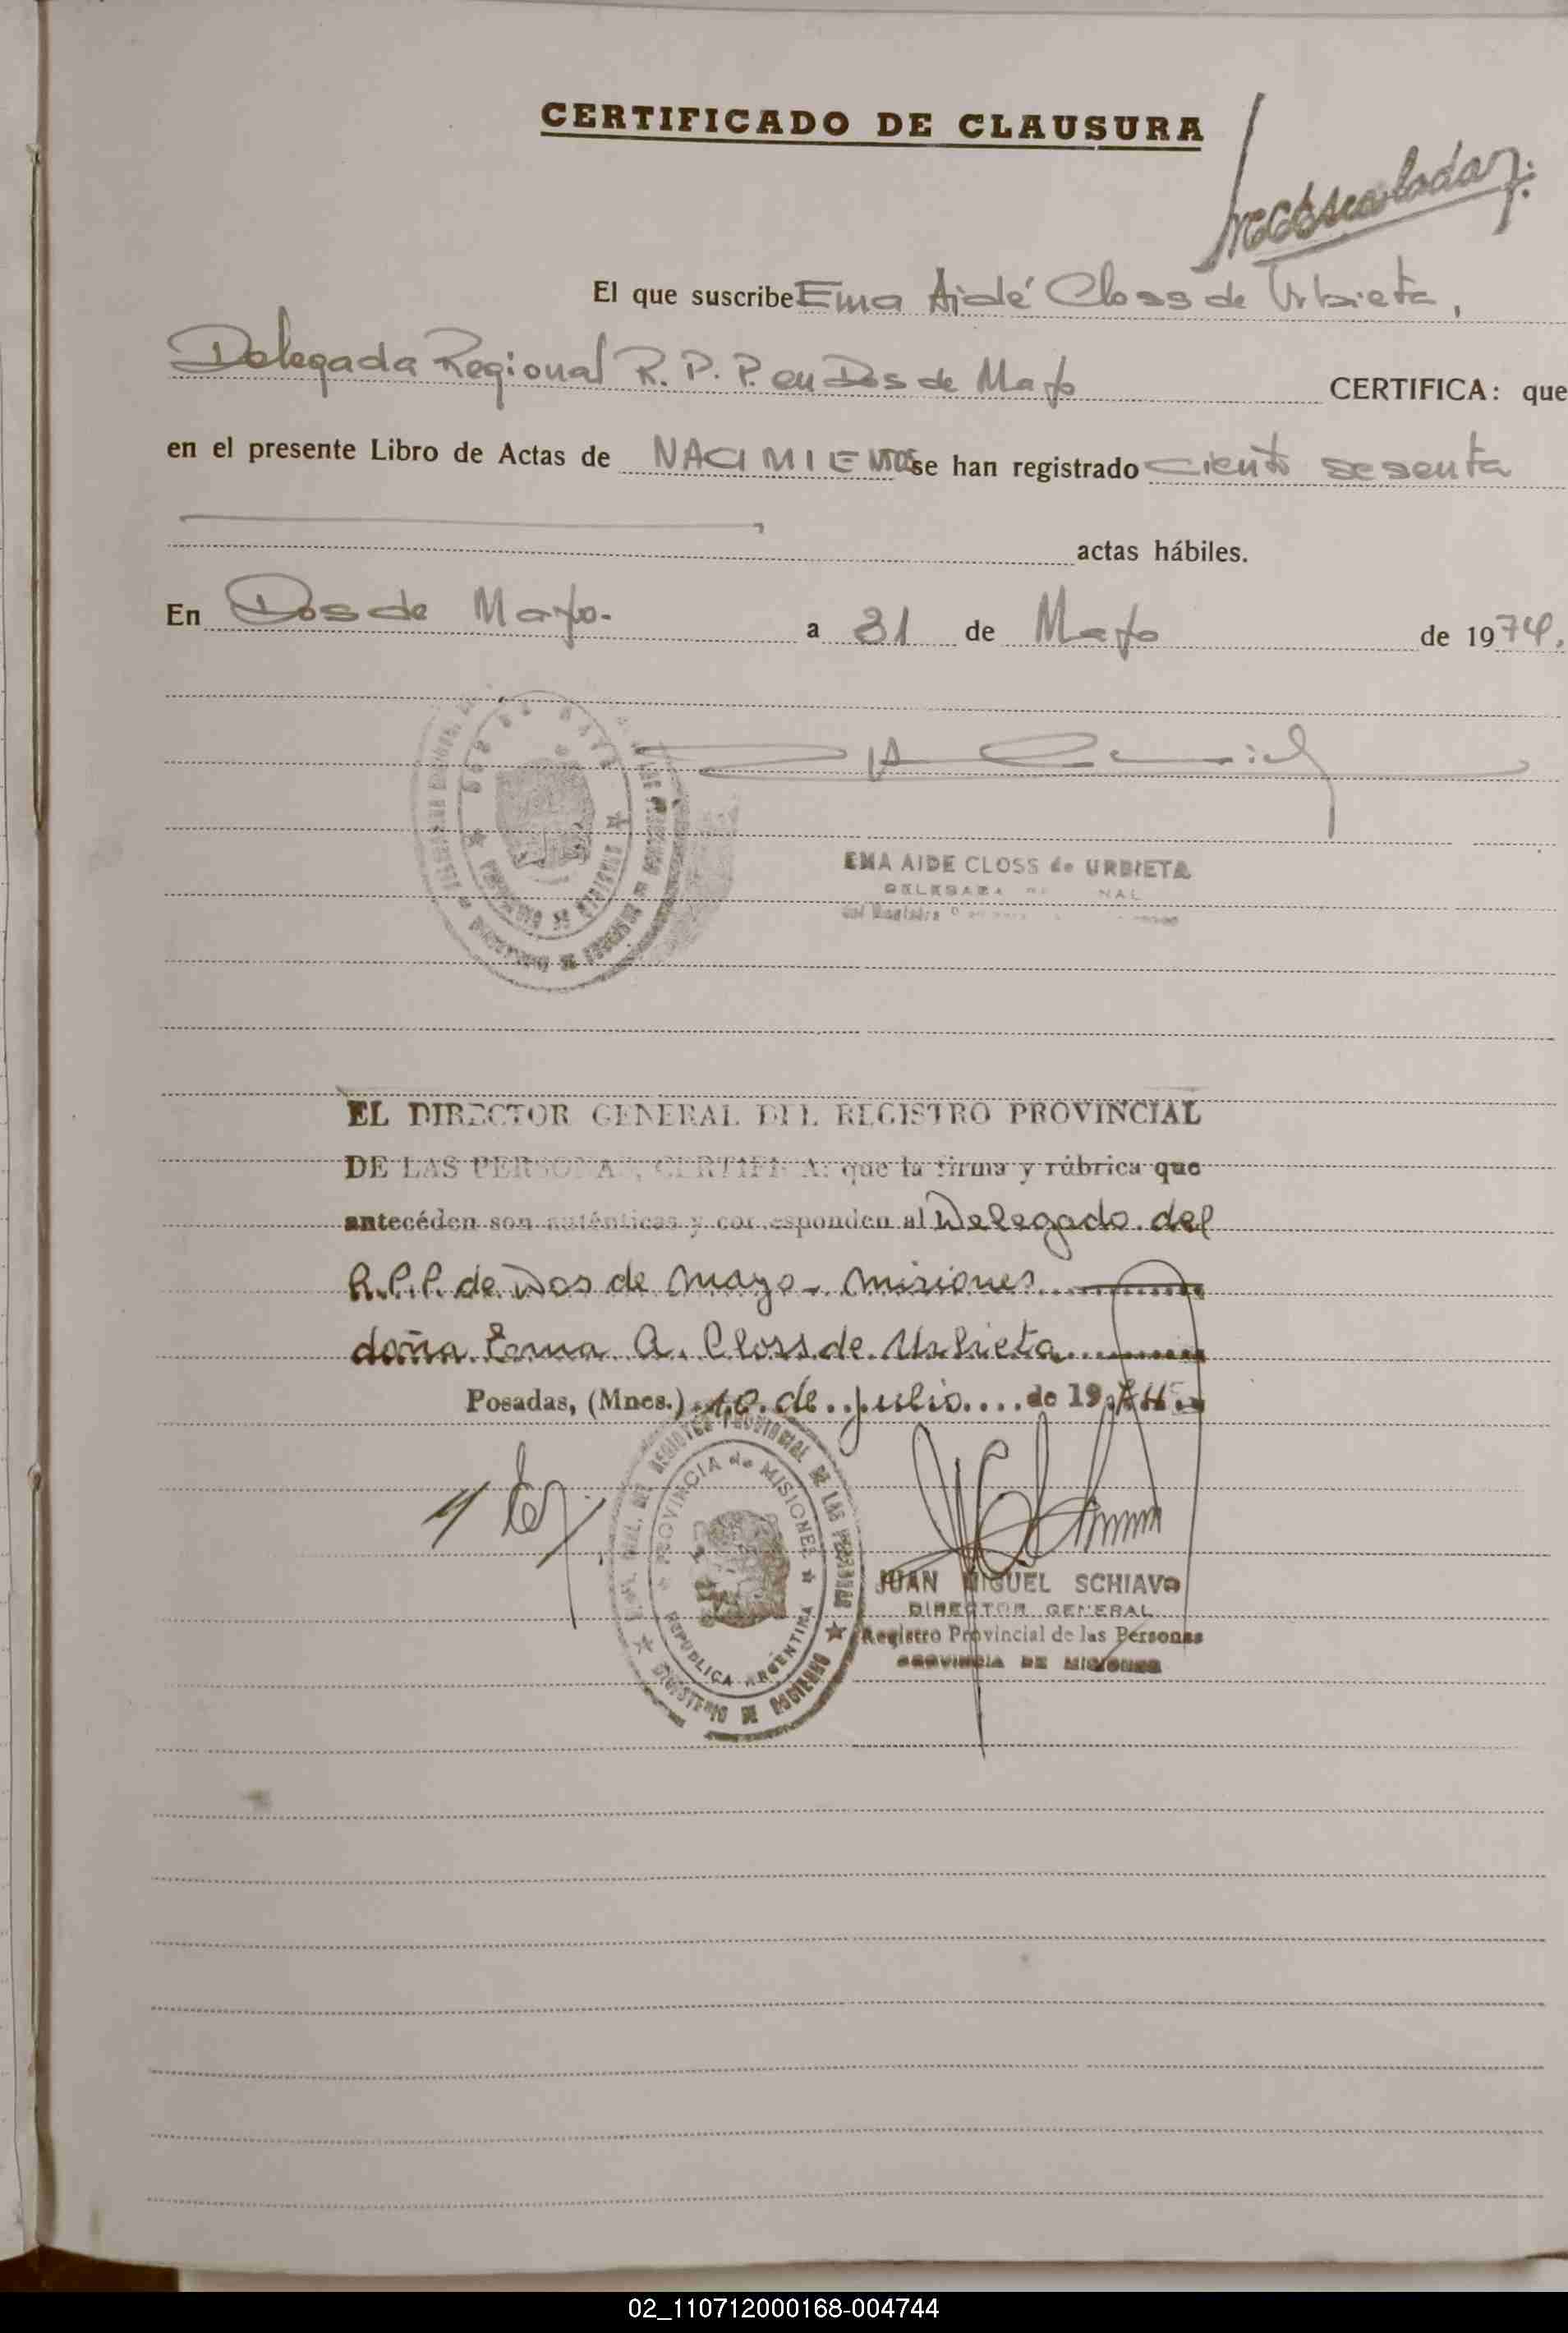 CERTIFICADO DE CLAUSURA
El que suscribe Ema Aidé Closs de Urbieta,
Delegada Regional R. P. P. en Dos de Mayo CERTIFICA: que
en el presente Libro de Actas de NACIMIENTOS se han registrado ciento sesenta
actas hábiles.
En Dos de Mayo. a 31 de Mayo de 1974.
DOS DE MAYO
EMA AIDE CLOSS de URBIETA
EL DIRECTOR GENERAL DEL REGISTRO PROVINCIAL
DE LAS PERSONAS, CERTIFICA: que la firma y rúbrica que
antecéden son auténticas y corresponden al Delegado del
R.P.P. de Dos de Mayo - Misiones
doña Ema A. Closs de Urbieta
Posadas, (Mnes.) 10 de julio de 19
REGISTRO PROVINCIAL DE LAS PERSONAS
PROVINCIA de MISIONES
REPUBLICA ARGENTINA
MINISTERIO DE GOBIERNO
JUAN MIGUEL SCHIAVO
DIRECTOR GENERAL
Registro Provincial de las Personas
PROVINCIA DE MISIONES
02_110712000168-004744